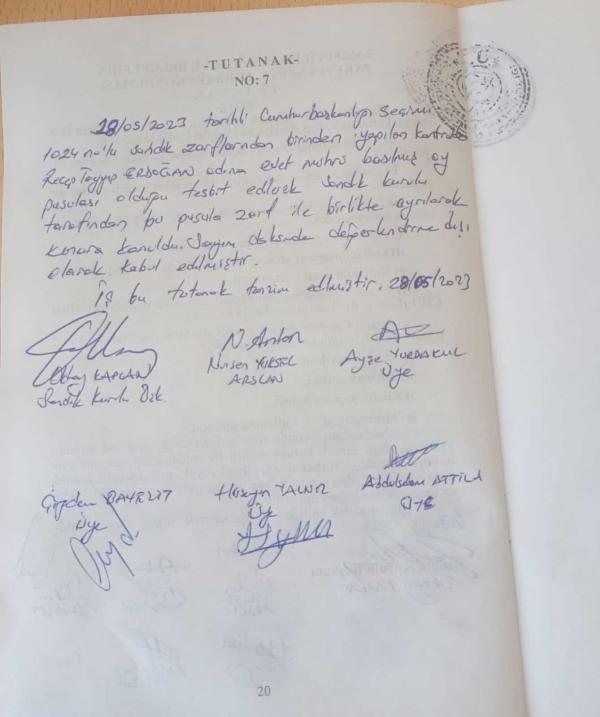 -TUTANAK-
NO: 7
28/05/2023 tarihli Cumhurbaşkanlığı Seçimi
1024 no'lu sandık zarflarından birinden yapılan kontrolde
Recep Tayyip ERDOĞAN adına evet mührü basılmış oy
pusulası olduğu tesbit edilerek sandık kurulu
tarafından bu pusula zarf ile birlikte ayrılarak
kenara konuldu. Sayım dışında değerlendirme dışı
olarak kabul edilmiştir.
İş bu tutanak tanzim edilmiştir. 28/05/2023
KAPLAN
Sandık Kurulu Bşk.
N. Arslan
Nursen YÜKSEL
ARSLAN
Ayşe YURDAKUL
Üye
Çiğdem
Üye
Hüseyin YALNIZ
Üye
Abdulselam ATTİLA
Üye
20